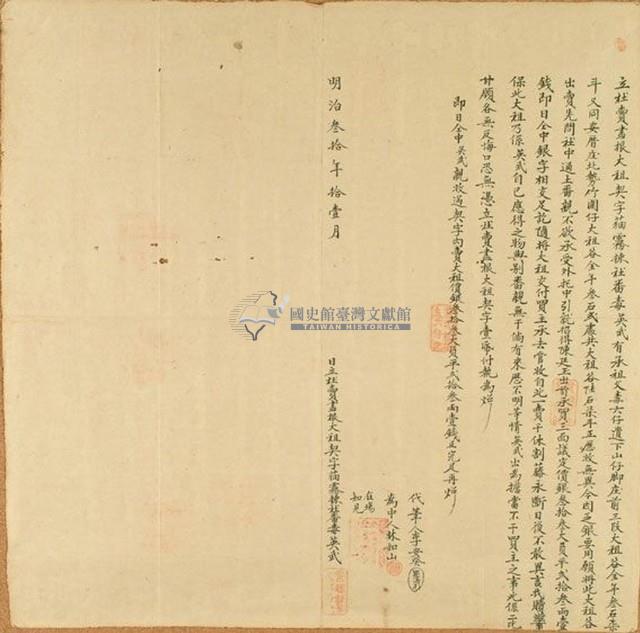 立杜賣盡根大租契字猫霧捒社番毒英武有承祖父毒六仔遺下山仔脚庄前三段大租谷全年叁石柒
斗又同安厝庄北勢竹圍仔大租谷全年叁石貳共大租谷陸石柒年年應收無異今因乏銀要用願將此大租谷
出賣先問社中通土番親不欲承受外托中引就招得陳廷玉出首承買三面議定價銀叁拾叁大員平貳拾叁兩壹
錢即日仝中銀字相交足訖隨將大租交付買主承去管收自此一賣千休割藤永斷日後不敢異言找贖
保此大租乃係英武自己應得之物與別番親無干倘有來歷不明等情英武出為擔當不干買主之事此係二比
甘願各無反悔口恐無憑立杜賣盡根大租契字壹帋付執為炤
即日仝中英武親收過契字內賣大租價銀叁拾叁大員平貳拾叁兩壹錢正完足再炤
代筆人李安癸
為中人林知山
在場
知見
日立杜賣盡根大租契字猫霧捒社番毒英武
明治叁拾年拾壹月
國史館臺灣文獻館
TAIWAN HISTORICA